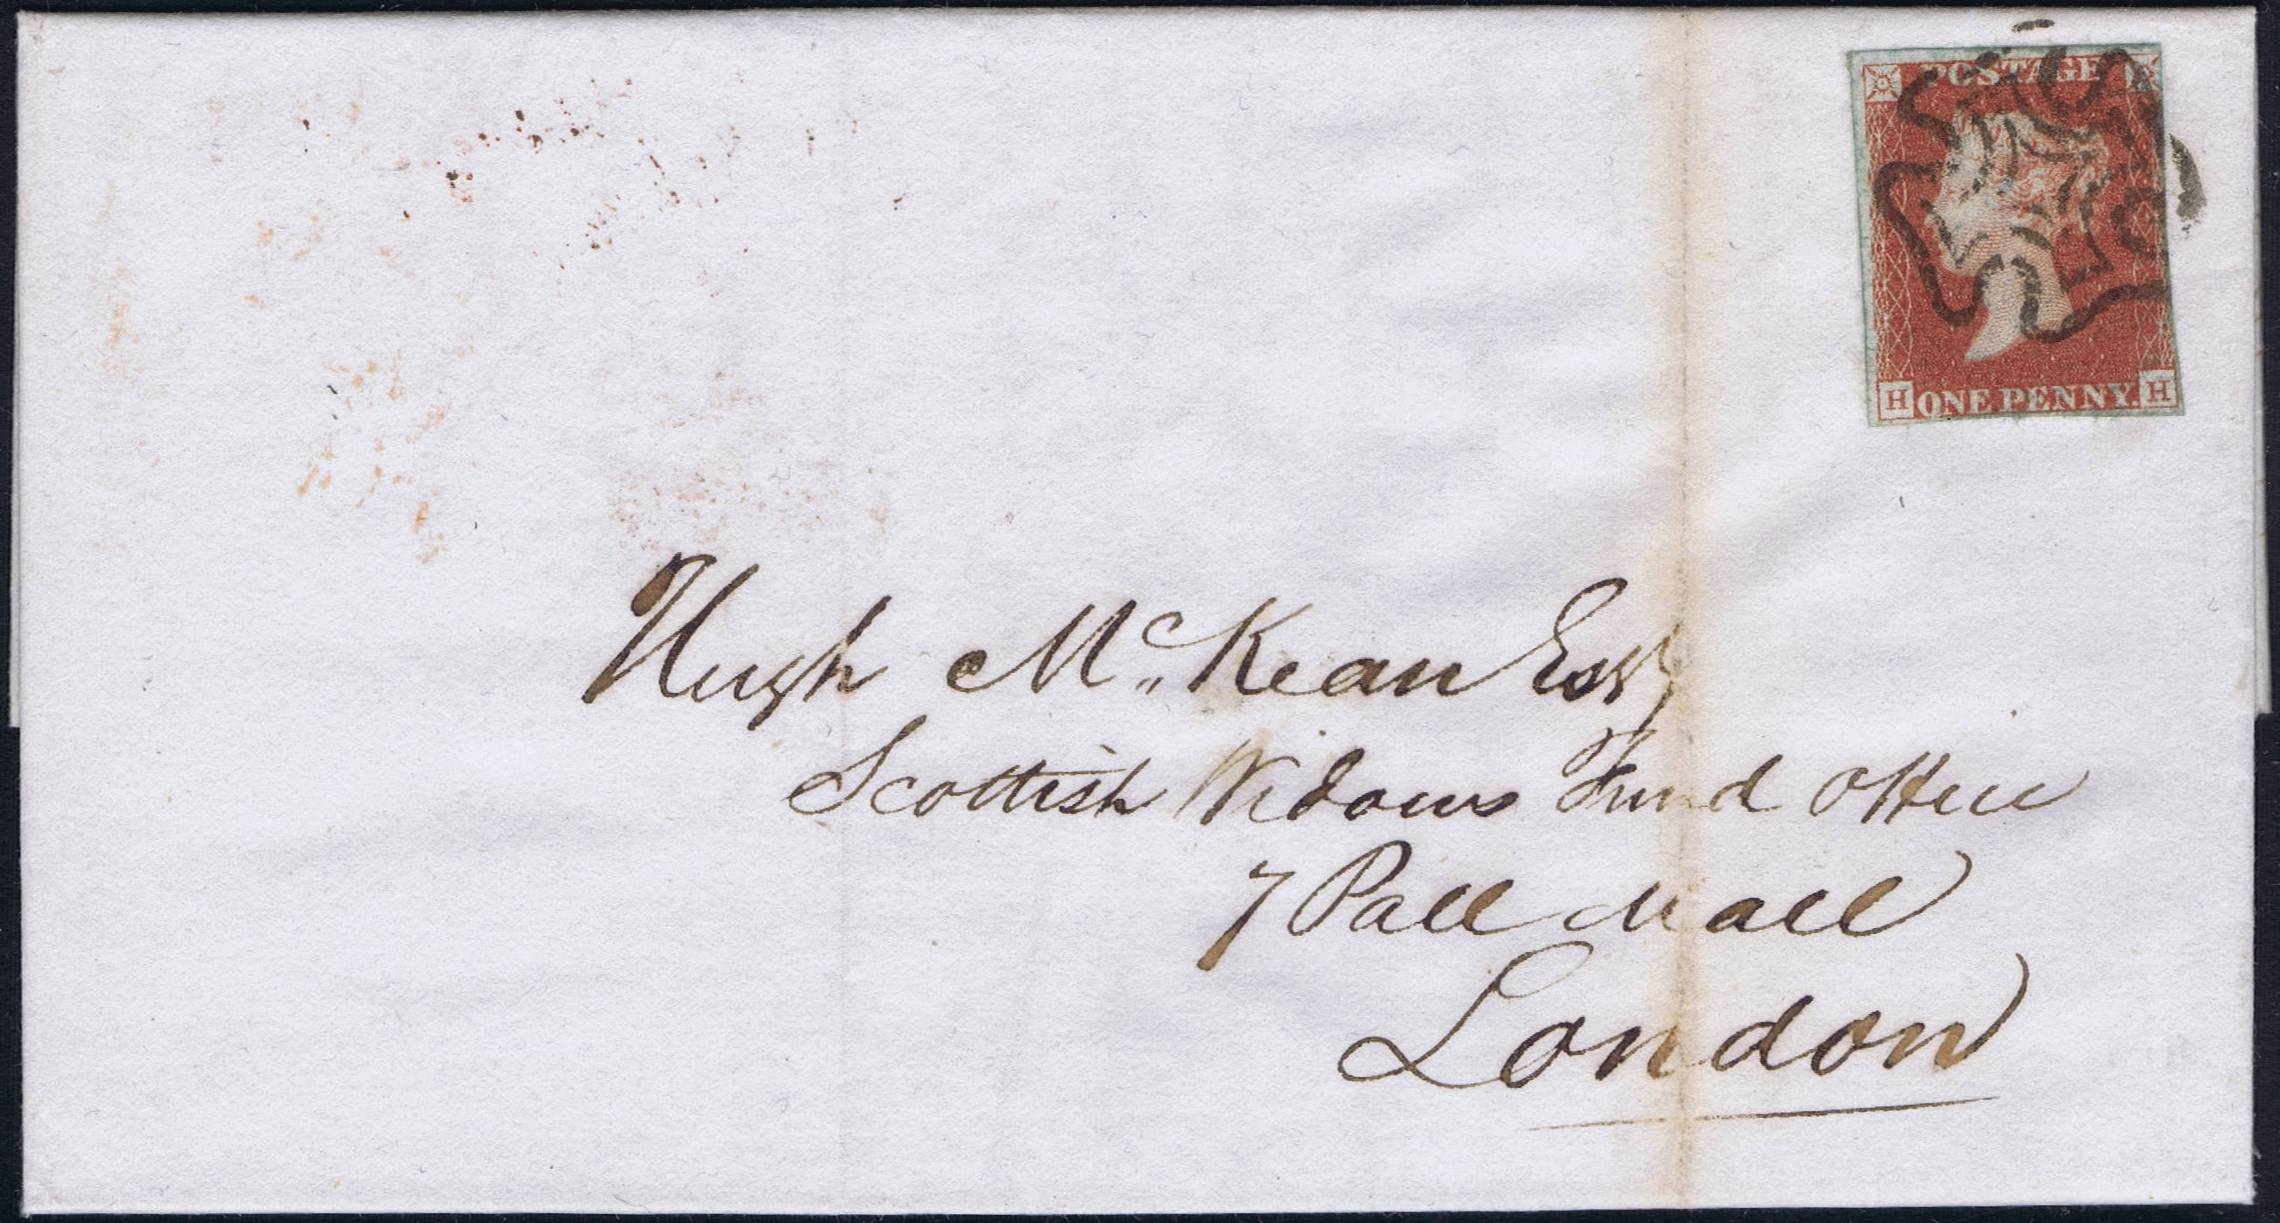 POSTAGE
H ONE PENNY. H
Hugh Mc. Kean Esqr
Scottish Widows Fund Office
7 Pall Mall
London